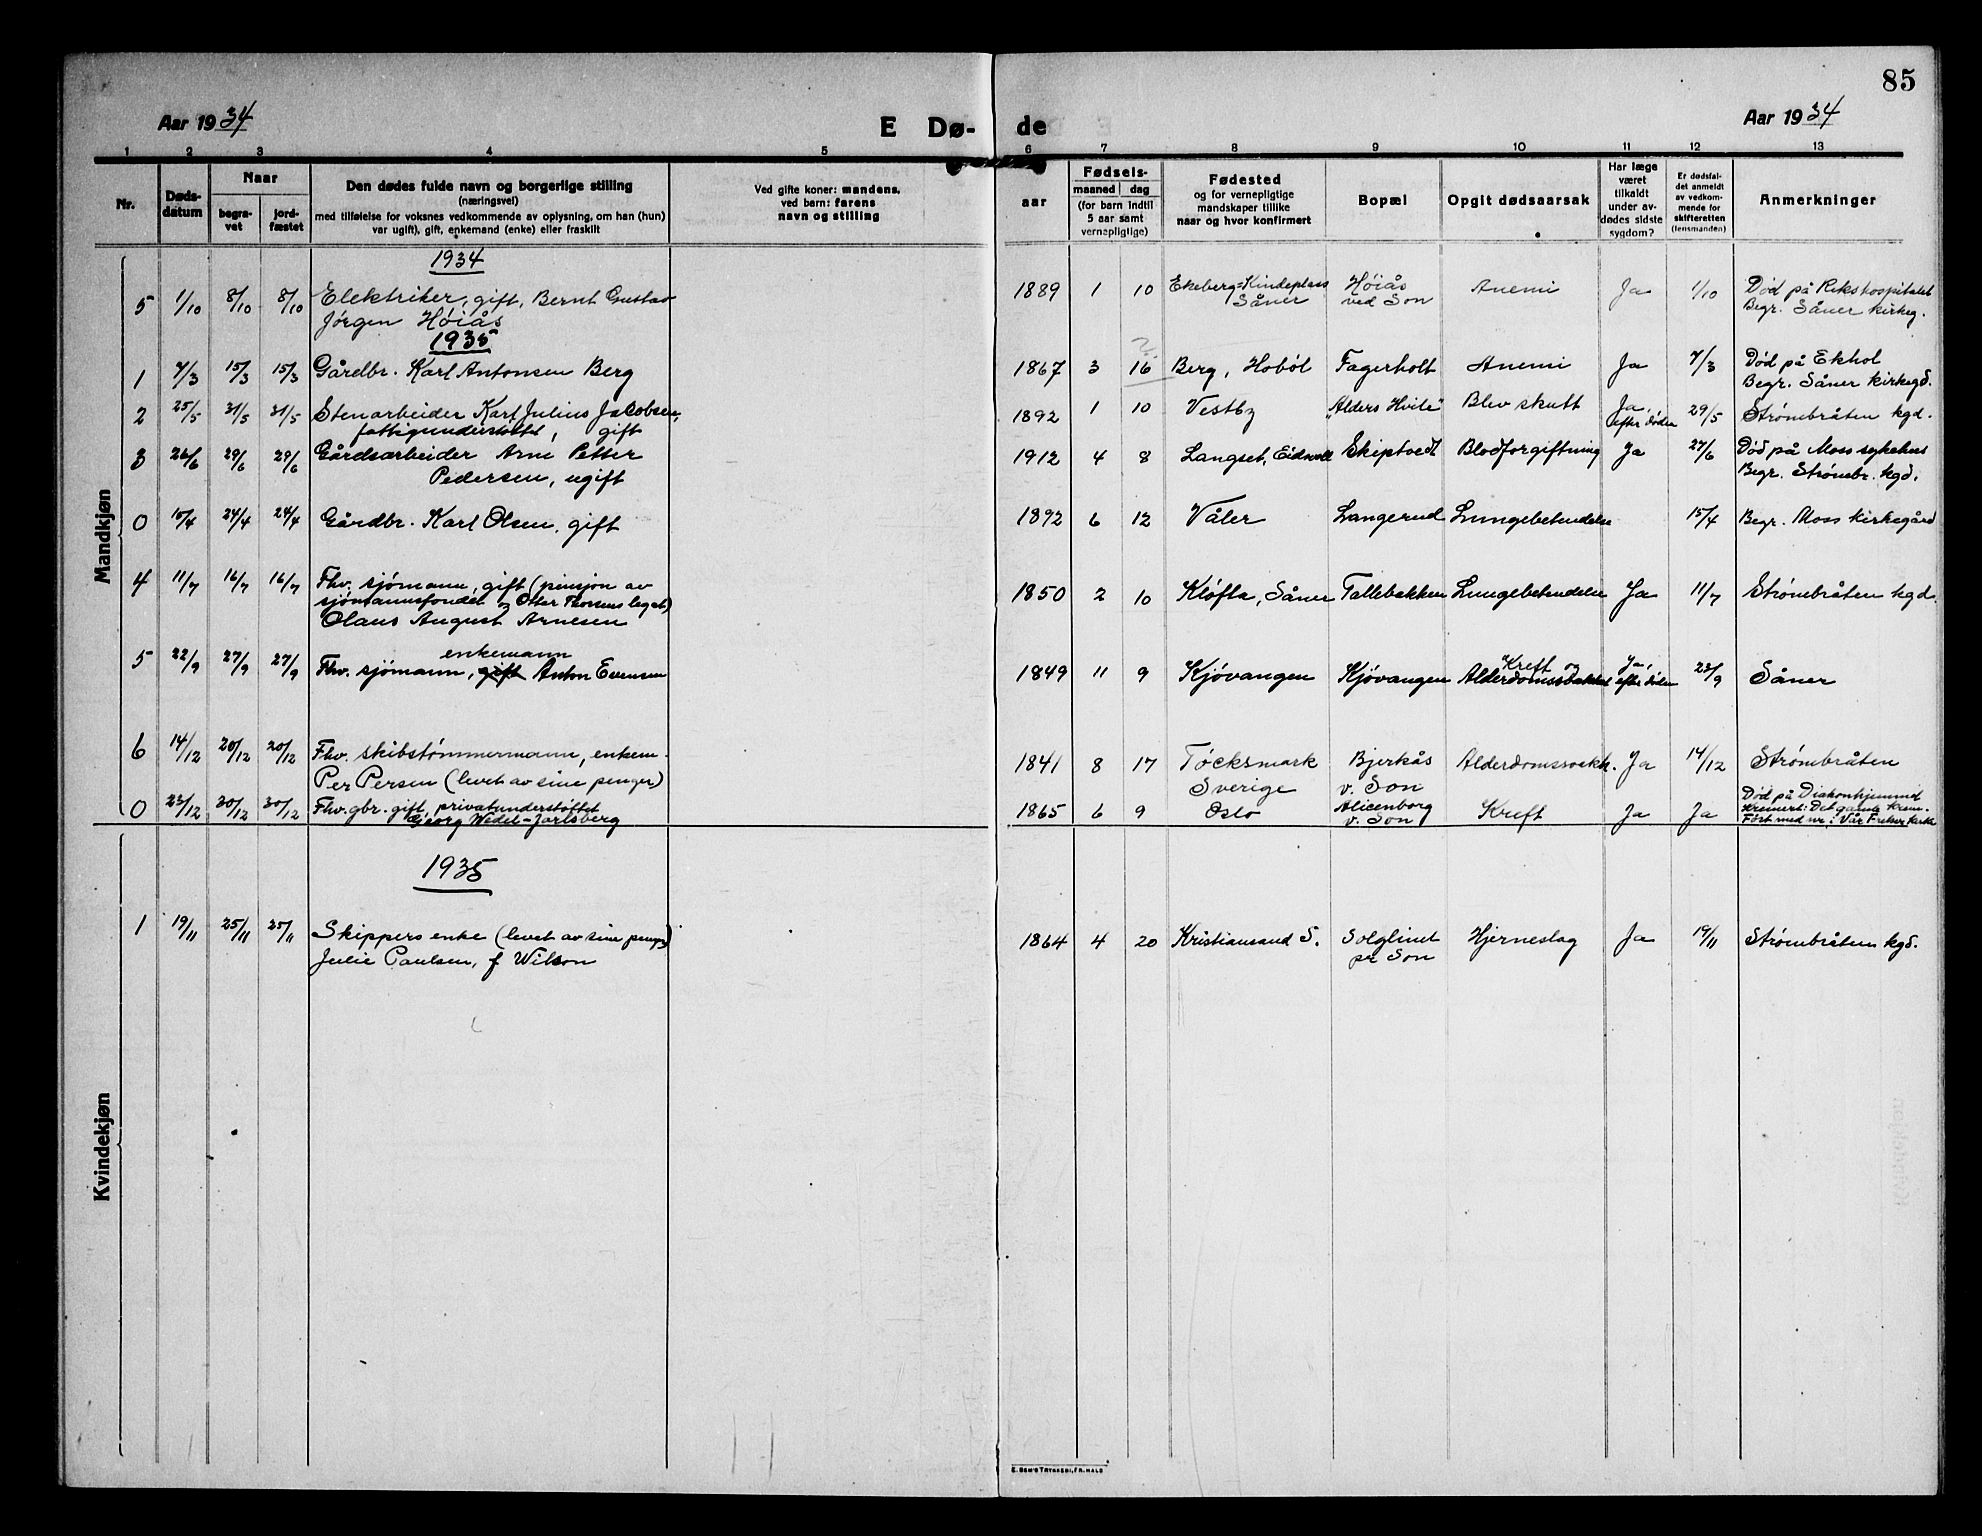 85
Aar 1934
E Dø-
de
Aar 1934
1 2 3 4 5 6 7 8 9 10 11 12 13
Nr.
Døds-
datum
Naar
begra-
vet
jord-
fæstet
Den dødes fulde navn og borgerlige stilling
(næringsvei)
med tilføielse for voksnes vedkommende av oplysning, om han (hun)
var ugift), gift, enkemand (enke) eller fraskilt
Ved gifte koner: mandens,
ved barn: farens
navn og stilling
Fødsels-
aar
maaned dag
(for barn indtil
5 aar samt
vernepligtige)
Fødested
og for vernepligtige
mandskaper tillike
naar og hvor konfirmert
Bopæl
Opgit dødsaarsak
Har læge
været
tilkaldt
under av-
dødes sidste
sygdom?
Er dødsfal-
det anmeldt
av vedkom-
mende for
skifteretten
(lensmanden)
Anmerkninger
Mandkjøn
1934
5 1/10 8/10 8/10 Elektriker, gift, Bernt Gustav
Jørgen Høiås
1889 1 10 Ekeberg=Kindeplass
Såner
Høiås
ved Son
Anemi Ja 1/10 Død på Rikshospitalet
Begr. Såner kirkeg.
1935
1 7/3 15/3 15/3 Gårdbr. Karl Antonsen Berg
1867 3 16 Berg, Hobøl Fagerholt Anemi Ja 7/3 Død på Ekhol
Begr. Såner kirkegd.
2 25/5 31/5 31/5 Stenarbeider Karl Julius Jacobsen,
fattigunderstøttet, gift
1892 1 10 Vestby "Alders Hvile" Blev skutt Ja,
efter døden
29/5 Strømbråten kgd.
3 26/6 29/6 29/6 Gårdsarbeider Arne Petter
Pedersen, ugift
1912 4 8 Langset, Eidsvoll Skiptvedt Blodforgiftning Ja 27/6 Død på Moss sykehus
Begr. Strømbr. kgd.
0 15/4 24/4 24/4 Gårdbr. Karl Olsen, gift
1892 6 12 Våler Langerud Lungebetendelse 15/4 Begr. Moss kirkegård
4 11/7 16/7 16/7 Fhv. sjømann, gift (pensjon av
sjømannsfondet og Otter Thoresens legat)
Olaus August Arnesen
1850 2 10 Kløfta, Såner Tallebakken Lungebetendelse Ja 11/7 Strømbråten kgd.
enkemann
5 22/9 27/9 27/9 Fhv. sjømann, gift Anton Evensen
1849 11 9 Kjøvangen Kjøvangen Kreft og
Alderdomssvakhet
Ja,
efter døden
23/9 Såner
6 14/12 20/12 20/12 Fhv. skibstømmermann, enkem.
Per Persen (levet av sine penger)
1841 8 17 Töcksmark
Sverige
Bjerkås
v. Son
Alderdomssvakh. Ja 14/12 Strømbråten
0 23/12 30/12 30/12 Fhv. gbr. gift, privatunderstøttet
Georg Wedel-Jarlsberg
1865 6 9 Oslo Alicenborg
v. Son
Kreft Ja Ja Død på Diakonhjemmet
Kremert: Det gamle krem.
Ført med nr. i Vår Frelser kirke
Kvindekjøn
1935
1 19/11 25/11 25/11 Skippers enke (levet av sine penger)
Julie Paulsen, f Wilson
1864 4 20 Kristiansand S. Solglint
pr Son
Hjerneslag Ja 19/11 Strømbråten kgd.
E. SEM'S TRYKKERI, FR.HALD